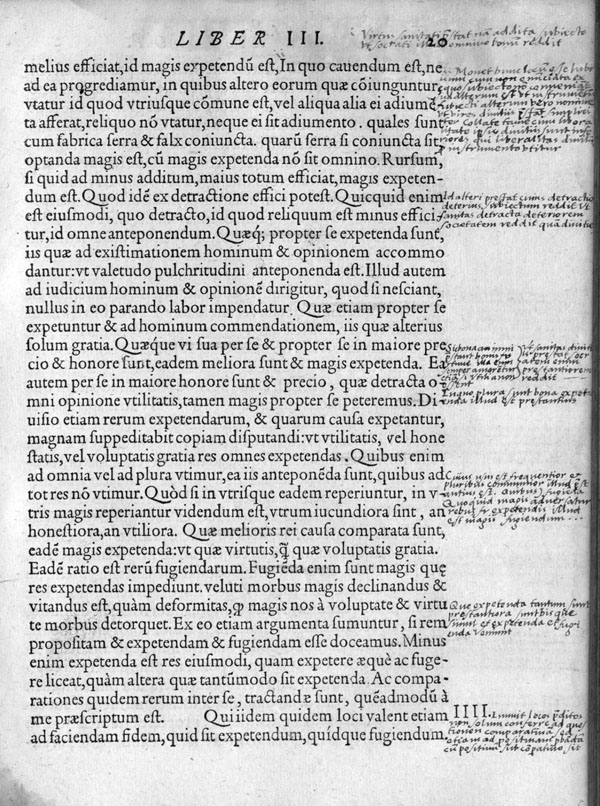 LIBER III. 20
Virtus sanitati præstat nam addita subiecto
melius efficiat, id magis expetendũ est, In quo cauendum est, ne
ad ea progrediamur, in quibus altero eorum quæ cõiunguntur
vtatur id quod vtriusque cõmune est, vel aliqua alia ei adiumẽ
ta afferat, reliquo nõ vtatur, neque ei sit adiumento. quales sunt
cum fabrica serra & falx coniuncta. quarũ serra si coniuncta sit
optanda magis est, cũ magis expetenda nõ sit omnino. Rursum,
si quid ad minus additum, maius totum efficiat, magis expeten-
dum est. Quod idẽ ex detractione effici potest. Quicquid enim
est eiusmodi, quo detracto, id quod reliquum est minus effici-
tur, id omne anteponendum. Quæq; propter se expetenda sunt,
iis quæ ad existimationem hominum & opinionem accommo
dantur: vt valetudo pulchritudini anteponenda est. Illud autem
ad iudicium hominum & opinionẽ dirigitur, quod si nesciant,
nullus in eo parando labor impendatur. Quæ etiam propter se
expetuntur & ad hominum commendationem, iis quæ alterius
solum gratia. Quæque vi sua per se & propter se in maiore pre
cio & honore sunt, eadem meliora sunt & magis expetenda. Ea
autem per se in maiore honore sunt & precio, quæ detracta o-
mni opinione vtilitatis, tamen magis propter se peteremus. Di-
uisio etiam rerum expetendarum, & quarum causa expetantur,
magnam suppeditabit copiam disputandi: vt vtilitatis, vel hone
statis, vel voluptatis gratia res omnes expetendas. Quibus enim
ad omnia vel ad plura vtimur, ea iis anteponẽda sunt, quibus ad
tot res nõ vtimur. Quòd si in vtrisque eadem reperiuntur, in v-
tris magis reperiantur videndum est, vtrum iucundiora sint, an
honestiora, an vtiliora. Quæ melioris rei causa comparata sunt,
eadẽ magis expetenda: vt quæ virtutis, q̃ quæ voluptatis gratia.
Eadẽ ratio est rerũ fugiendarum. Fugiẽda enim sunt magis quę
res expetendas impediunt. veluti morbus magis declinandus &
vitandus est, quàm deformitas, ꝙ magis nos à voluptate & virtu
te morbus detorquet. Ex eo etiam argumenta sumuntur, si rem
propositam & expetendam & fugiendam esse doceamus. Minus
enim expetenda est res eiusmodi, quam expetere æquè ac fuge-
re liceat, quàm altera quæ tantũmodo sit expetenda. Ac compa-
rationes quidem rerum inter se, tractandæ sunt, quẽadmodũ à
me præscriptum est. Qui iidem quidem loci valent etiam
ad faciendam fidem, quid sit expetendum, quídque fugiendum.
Id alteri præstat cuius detractio
deterius subiectum reddit vt
sanitas detracta deteriorem
In quo plura sunt bona expe
tenda illud est præstantius
Cuius usus est frequentior et
Quæ expetenda tantum sunt
IIII.